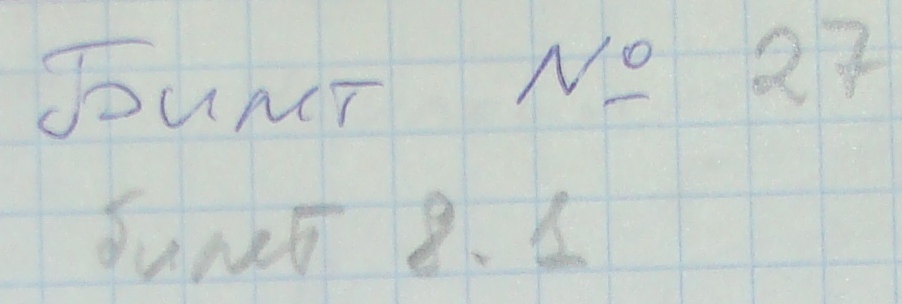 Билет № 27
билет 8. 1